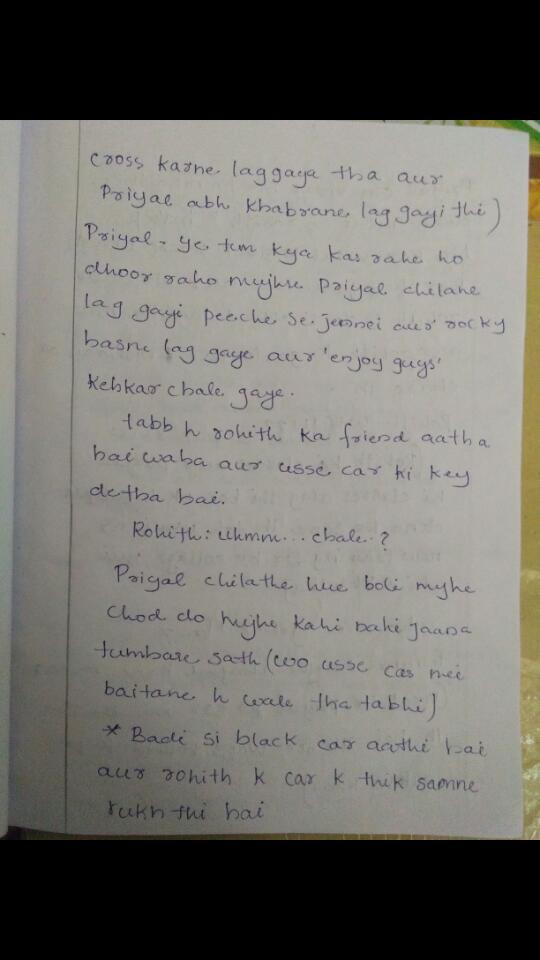 cross karne laggaya tha aur
Priyal abh khabrane lag gayi thi)
Priyal - ye tum kya kar rahe ho
dhoor raho mujhse Priyal chilane
lag gayi peeche se jennei aur rocky
hasne lag gaye aur 'enjoy guys'
kehkar chale gaye.
tabb h rohith ka friend aatha
hai waha aur usse car ki key
detha hai.
Rohith: uhmm... chale.?
Priyal chilathe hue boli mujhe
chod do mujhe kahi nahi jaana
tumhare sath (wo usse car mei
baitane h wale tha tabhi)
* Badi si black car aathi hai
aur rohith k car k thik samne
rukh thi hai